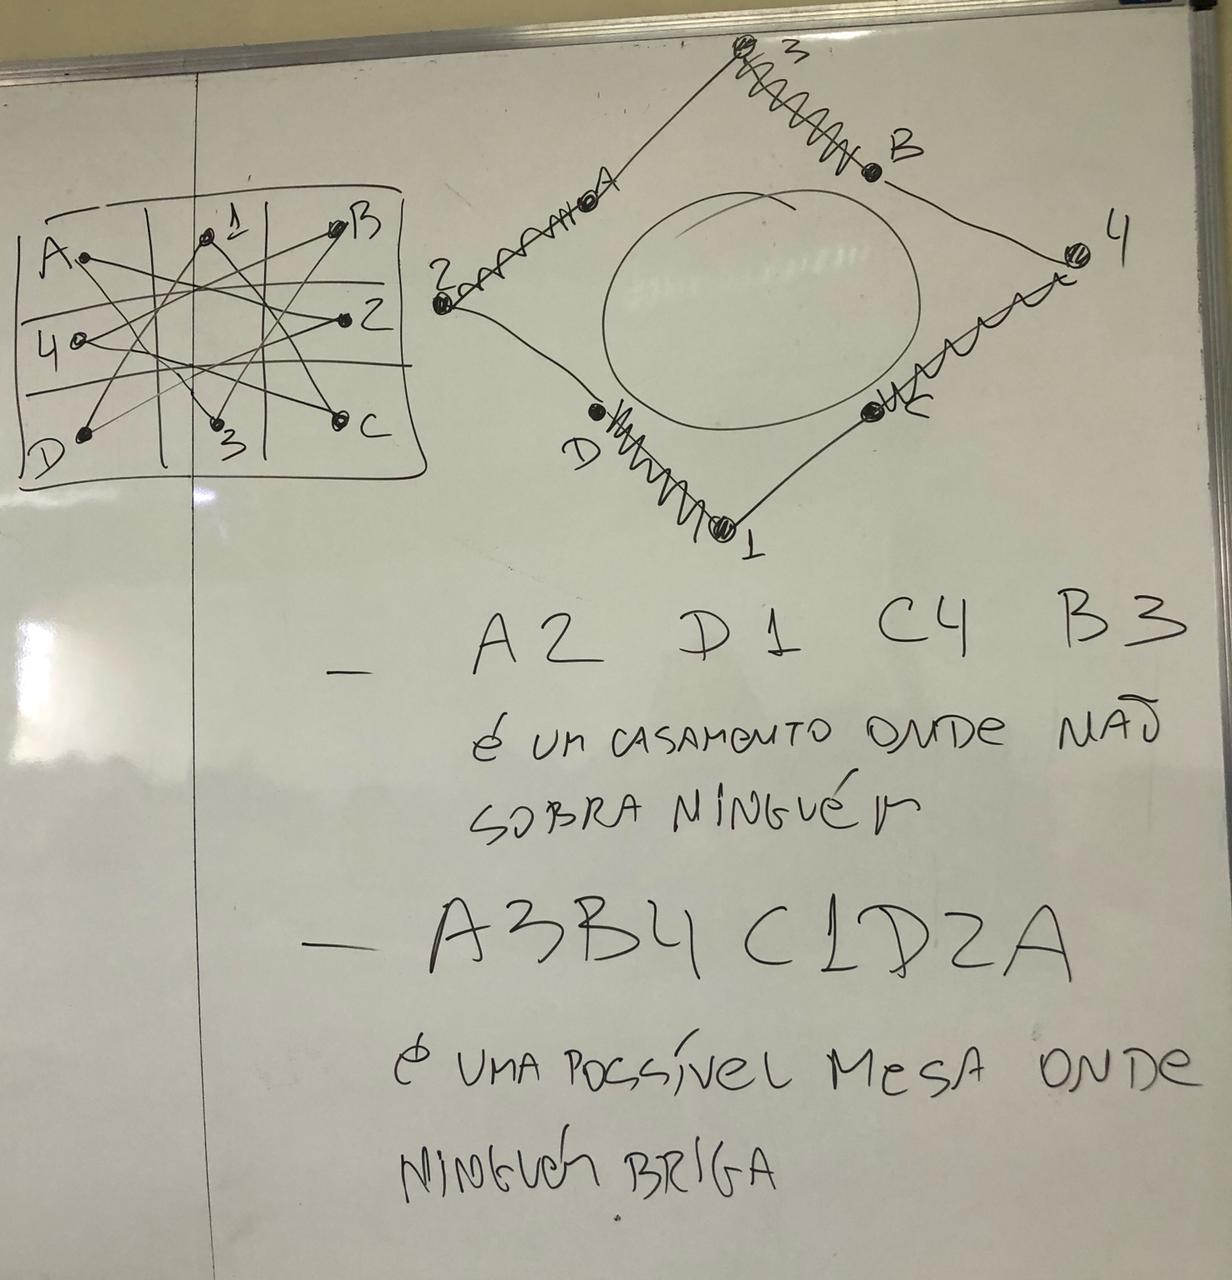 A 1 B
4 2
D 3 C
3
B
A
4
2
C
D
1
- A2 D1 C4 B3
é UM CASAMENTO ONDE NÃO
SOBRA NINGUÉM
- A3B4C1D2A
é UMA POSSÍVEL MESA ONDE
NINGUÉM BRIGA